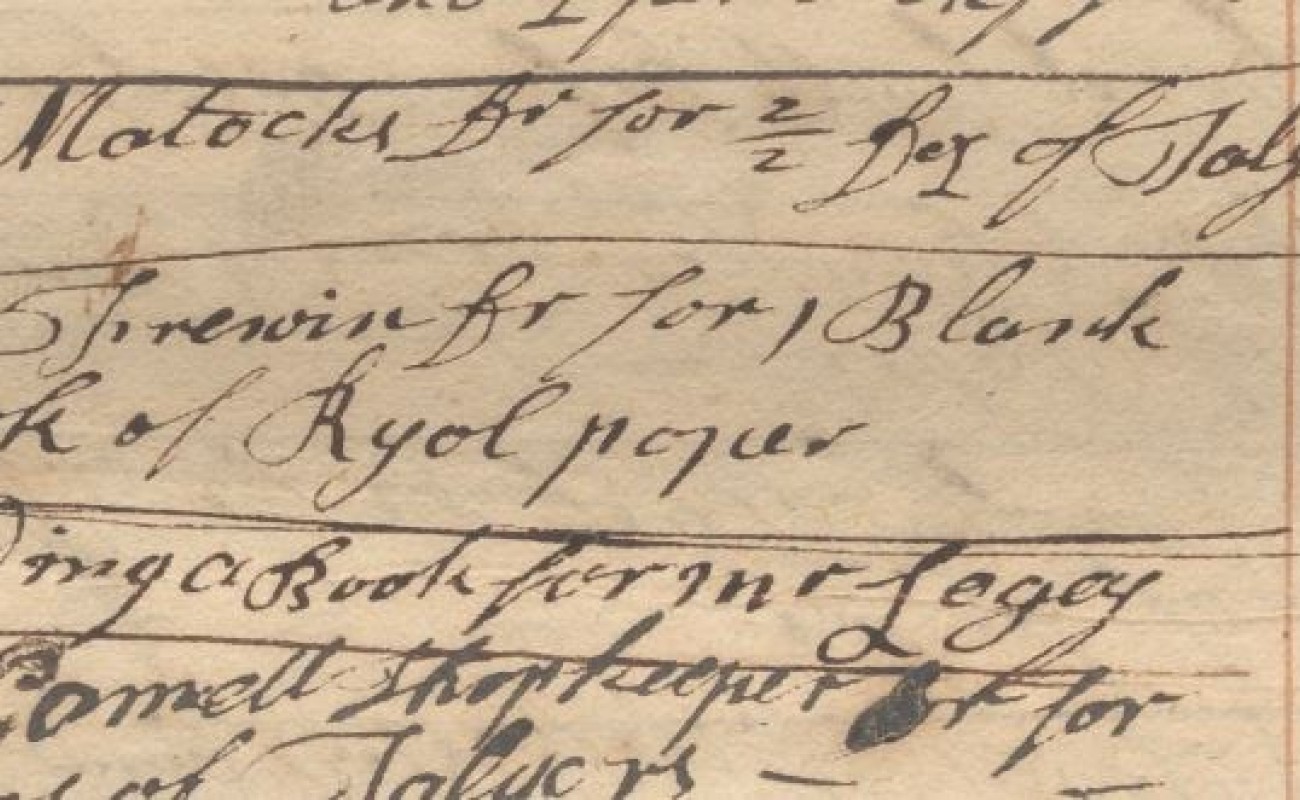 Matocks Dr for 2/2 Dez of Taly
Threwin Dr for 1 Blank
ok of Ryol paper
Ding a Book for mr Legey
Comwell Shopkeeper Dr for
of Talyers –